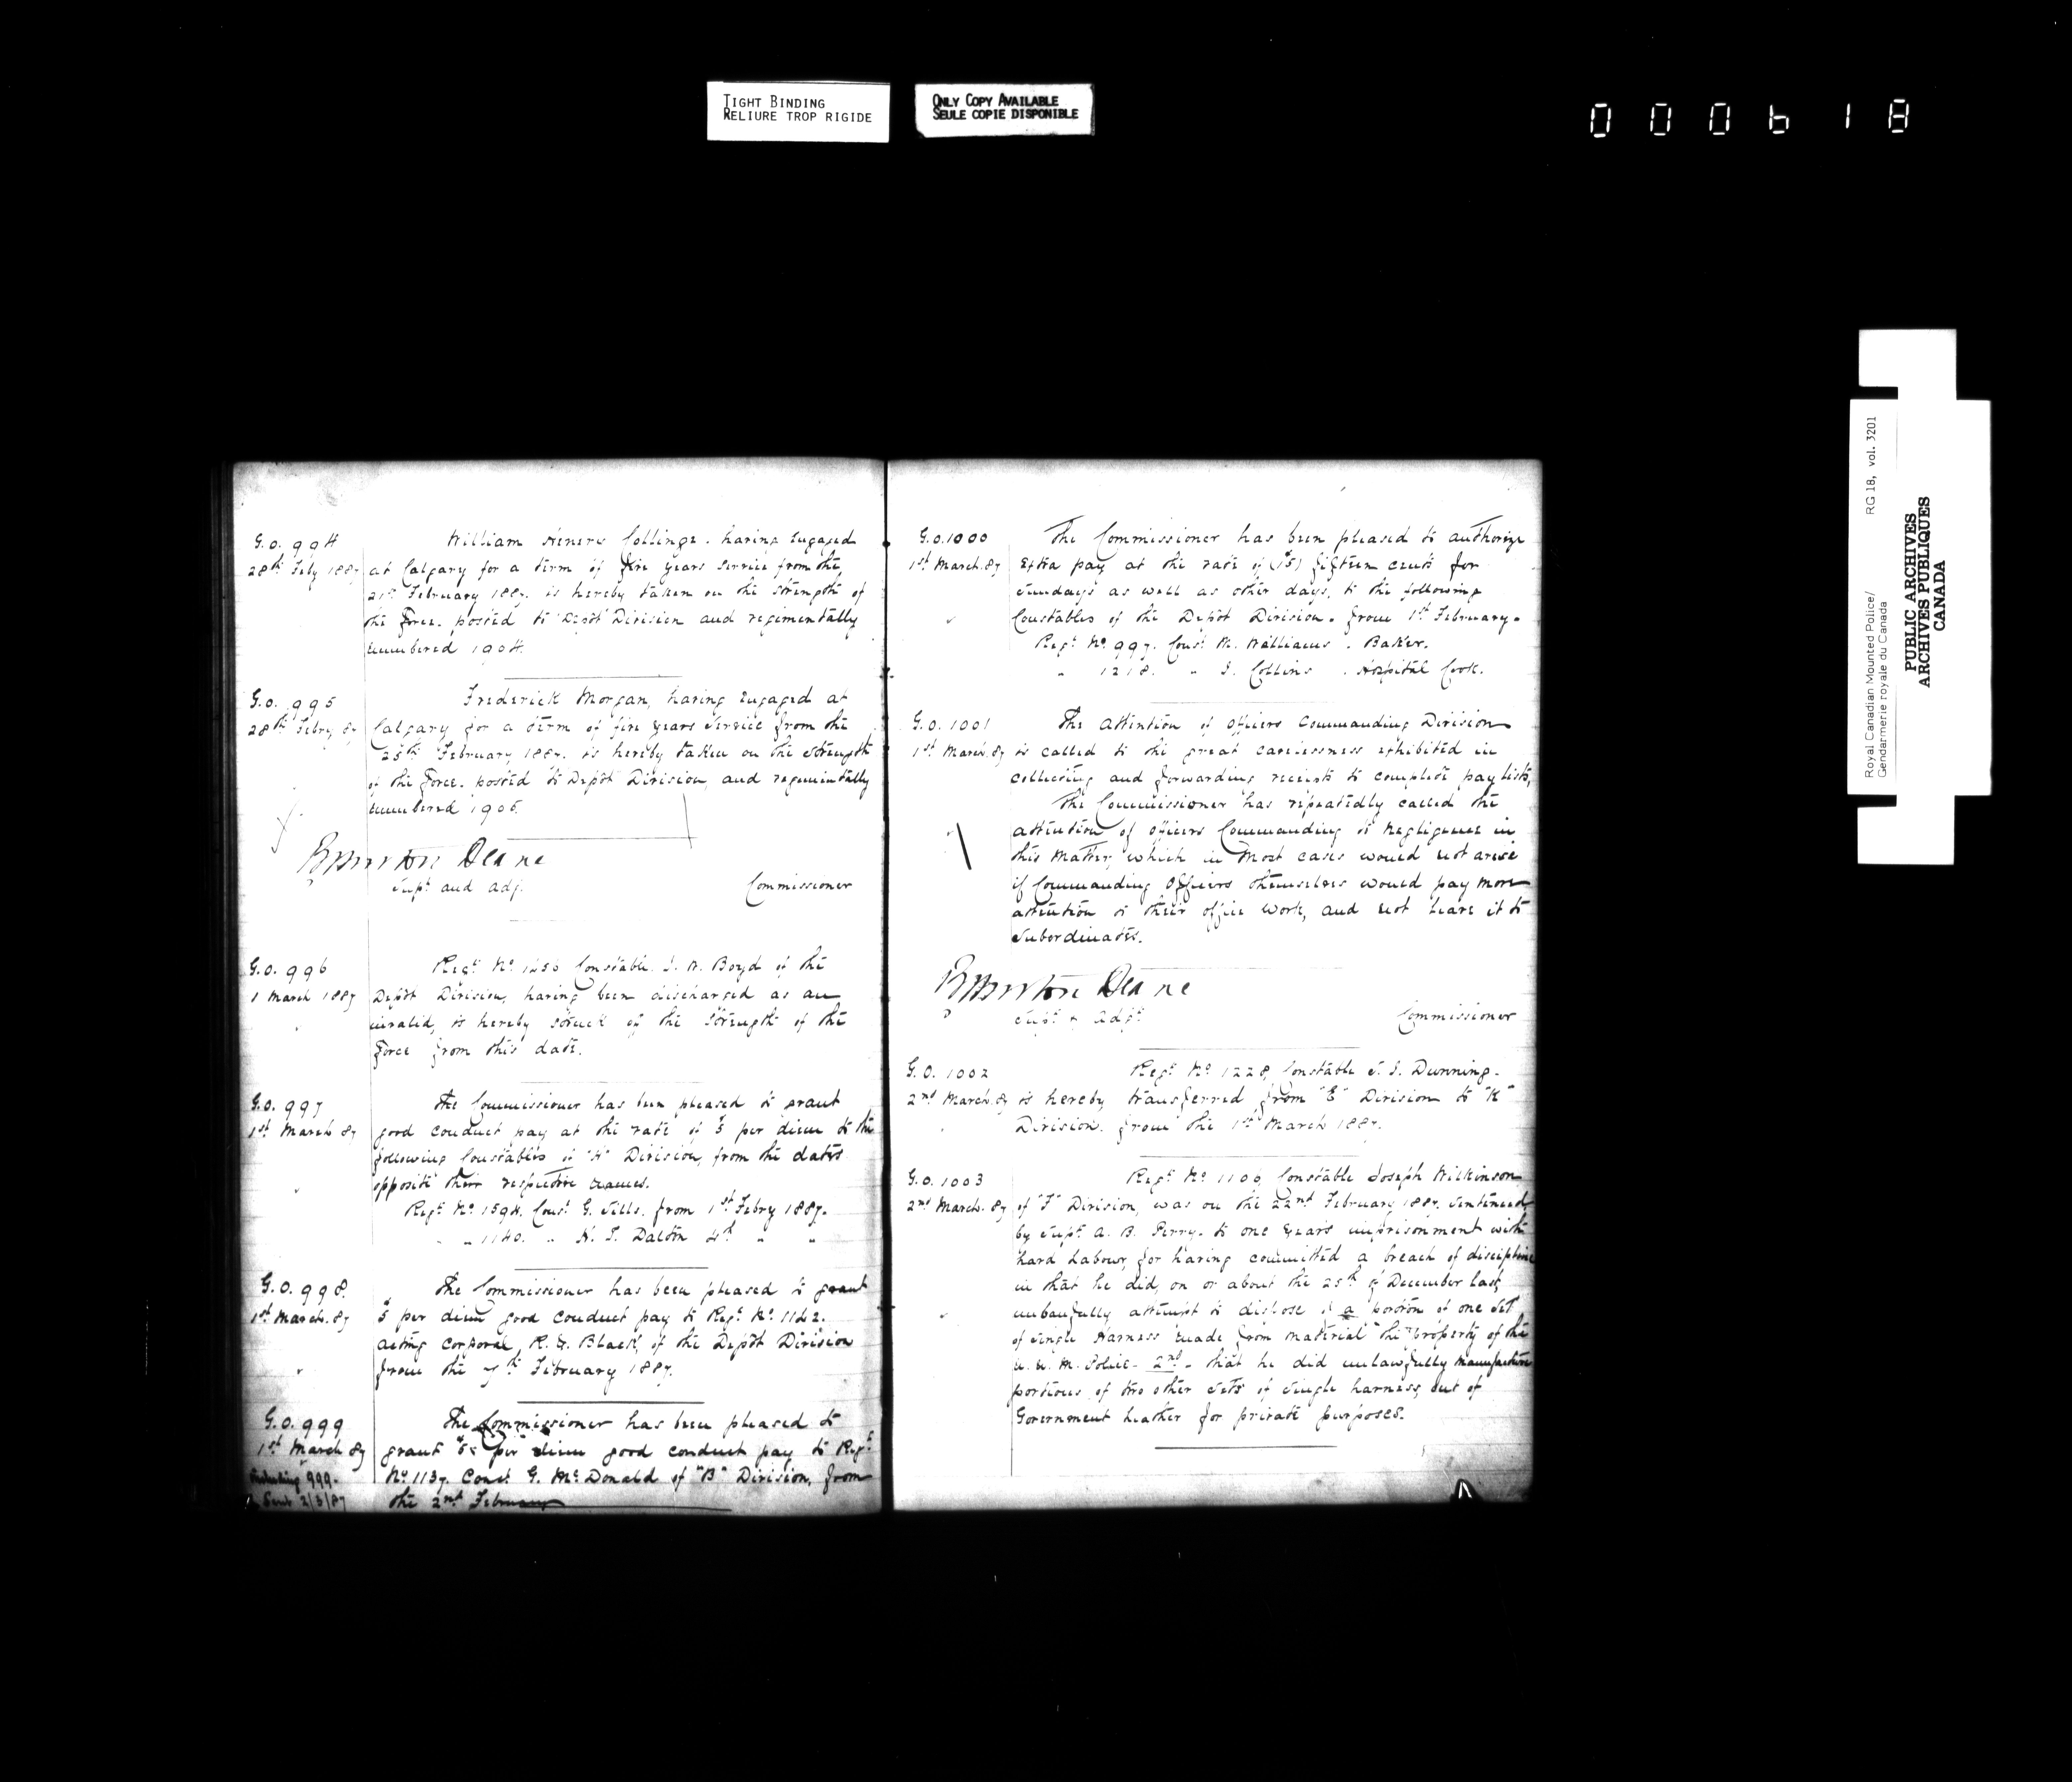 TIGHT BINDING
RELIURE TROP RIGIDE
ONLY COPY AVAILABLE
SEULE COPIE DISPONIBLE
000618
G.O. 994
28th Feby 1887
William Henery Collinge. having engaged
at Calgary for a term of five years service from the
21st February 1887. is hereby taken on the strength of
the Force. posted to Depôt Division and regimentally
numbered 1904.
G.O. 995
28th Febry 87
Frederick Morgan, having engaged at
Calgary for a term of five years service from the
25th February 1887. is hereby taken on the strength
of the Force. posted to Depôt Division, and regimentally
numbered 1905.
R Burton Deane
Supt and Adjt.
Commissioner
G.O. 996
1 March 1887
Regt No. Constable. J. A. Boyd of the
Depôt Division, having been discharged as an
invalid, is hereby struck off the strength of the
Force from this date.
G.O. 997
1st March 87
The Commissioner has been pleased to grant
good conduct pay at the rate of 5 per diem to the
following Constables of "H" Division, from the dates
opposite their respective names.
Regt No 1594. Const G. Sills. from 1st Febry 1887.
" " 1140. " H. S. Dalton 4th " "
G.O. 998.
1st March. 87
The Commissioner has been pleased to grant
5 per diem good conduct pay to Regt No. 1142.
acting corporal, R. G. Black, of the Depôt Division
from the 7th February 1887.
G.O. 999
1st March 87
The Commissioner has been pleased to
grant 5c per diem good conduct pay to Regt
No. 1137. Const. G. McDonald of "B" Division, from
the 2nd February
Including 999.
Sent 2/3/87
G.O. 1000
1st March. 87
The Commissioner has been pleased to authorize
Extra pay at the rate of (15) fifteen cents for
Sundays as well as other days, to the following
Constables of the Depôt Division. from 1st February.
Regt No. 997. Const W. Williams. Baker.
" 1218. " J. Collins. Hospital Cook.
G.O. 1001
1st March. 87
The attention of Officers Commanding Division
is called to the great carelessness exhibited in
collecting and forwarding receipts to complete pay lists,
The Commissioner has repeatedly called the
attention of Officers Commanding to negligence in
this matter, which in most cases would not arise
if Commanding Officers themselves would pay more
attention to their office work, and not leave it to
Subordinates.
R Burton Deane
Supt & Adjt.
Commissioner
G.O. 1002
2nd March. 87
Regt No. 1228, Constable J. S. Dunning.
is hereby transferred from "E" Division to "K"
Division. from the 1st March 1887.
G.O. 1003
2nd March. 87
Regt No. 1106 Constable Joseph Wilkinson
of "F" Division, was on the 22nd February 1887. sentenced
by Supt. A. B. Perry. to one years imprisonment with
hard Labour, for having committed a breach of discipline
in that he did, on or about the 25th of December last,
unlawfully attempt to dispose of a portion of one set
of single Harness made from material the property of the
N. W. M. Police - 2nd - that he did unlawfully manufacture
portions of two other sets of single harness, out of
Government leather for private purposes.
Royal Canadian Mounted Police/ RG 18, vol. 3201
Gendarmerie royale du Canada
PUBLIC ARCHIVES
ARCHIVES PUBLIQUES
CANADA